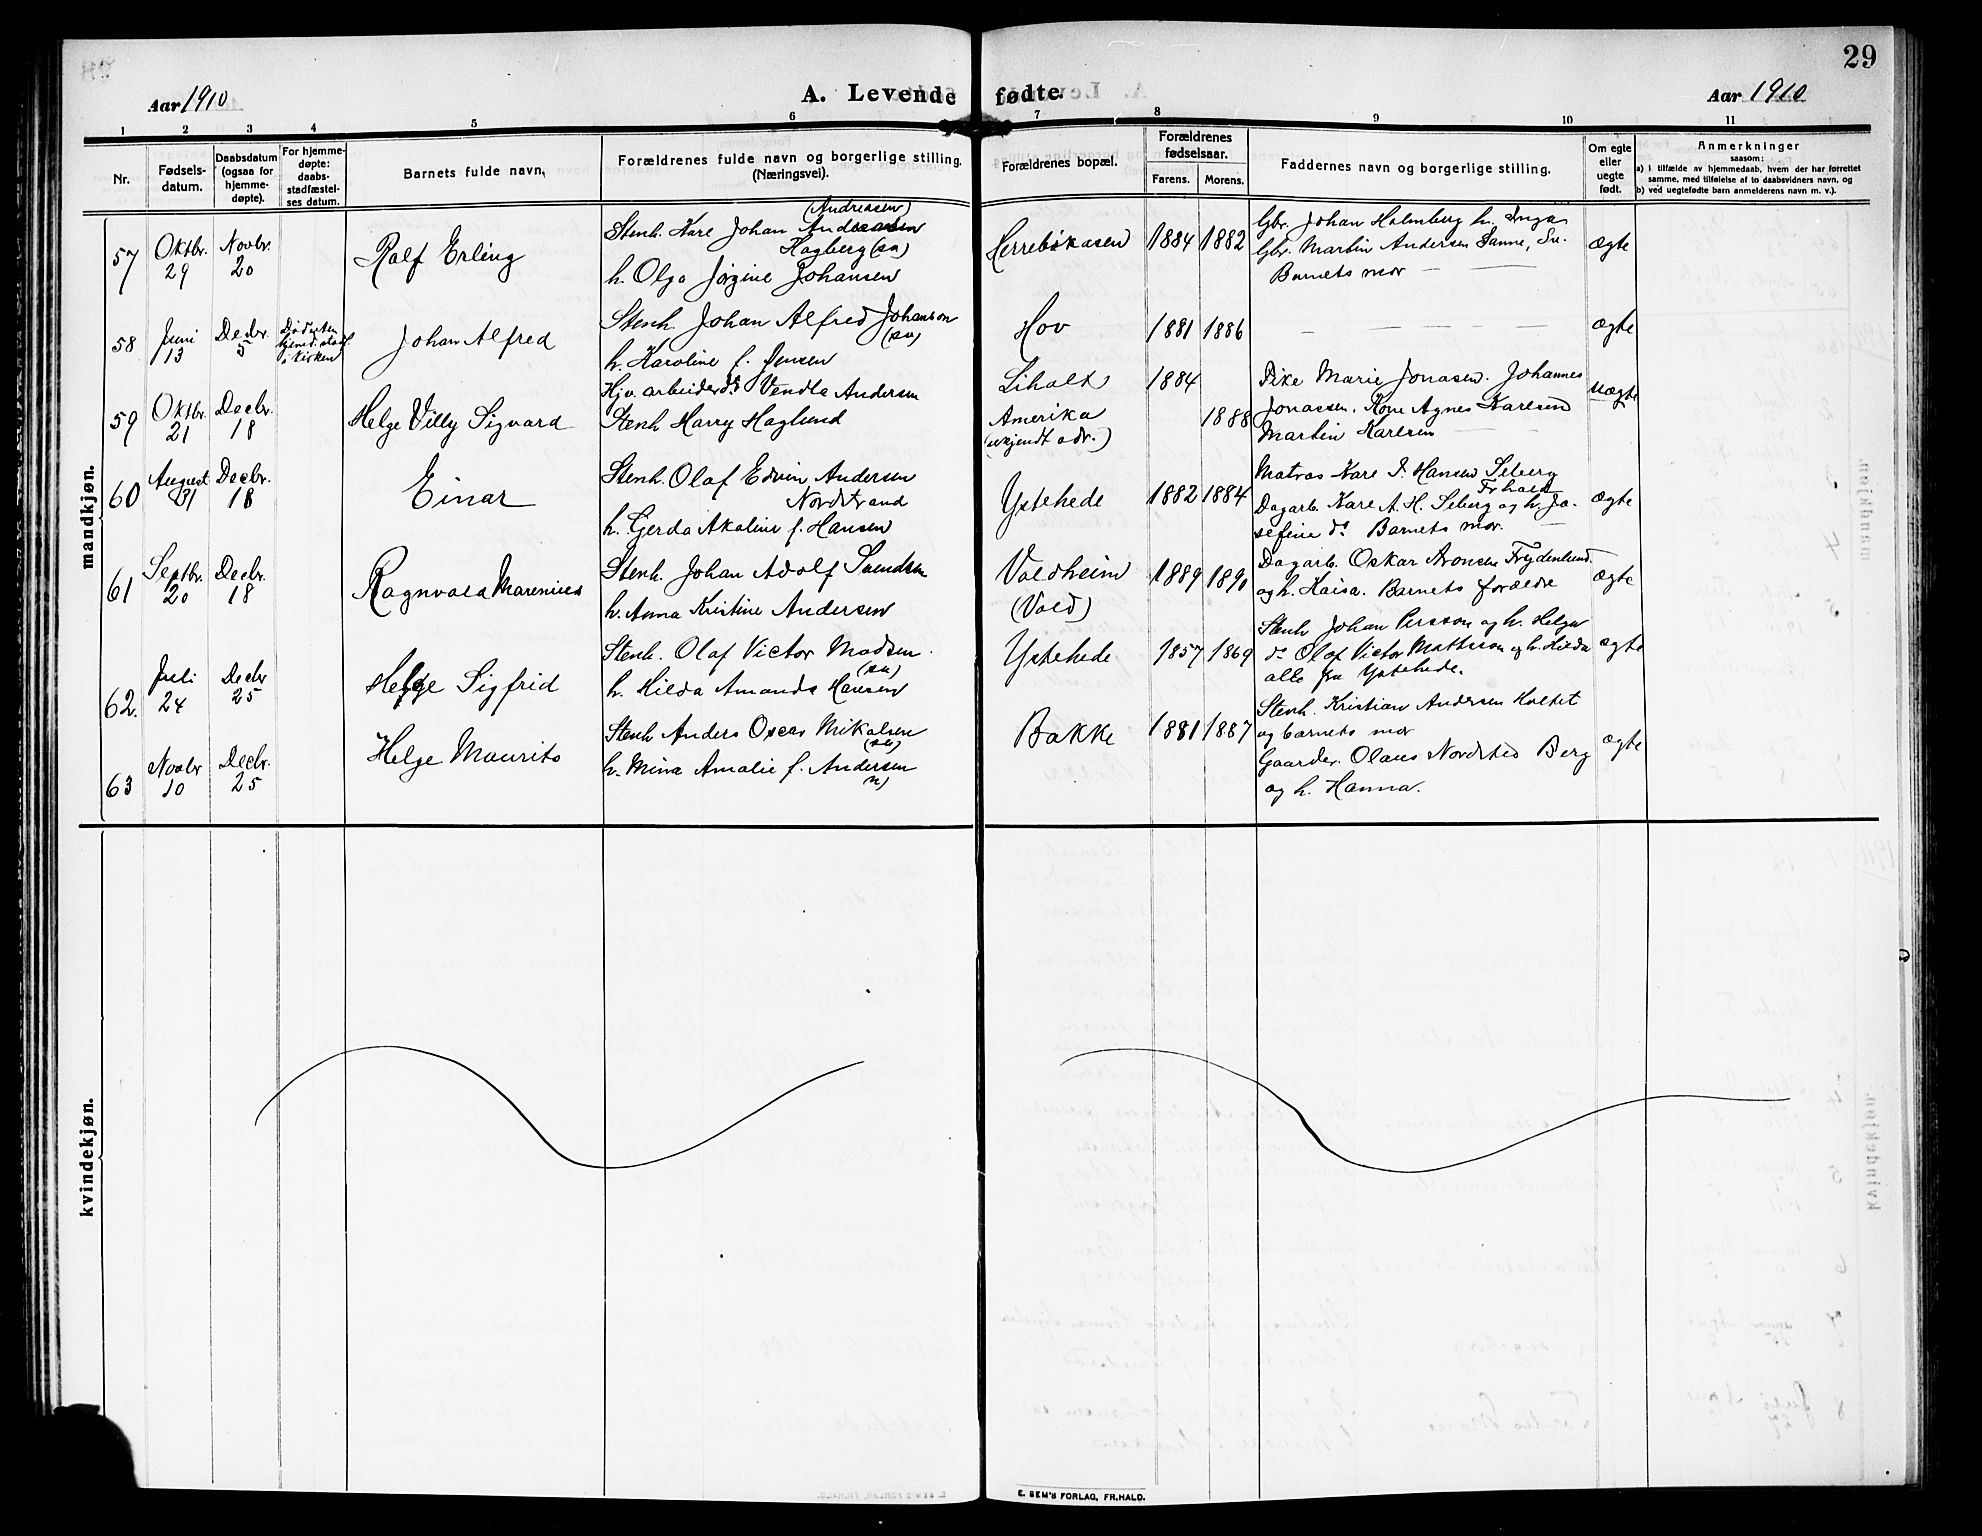 29
Aar 1910
A. Levende fødte.
Aar 1910
1 2 3 4 5 6 7 8 9 10 11
Nr.
Fødsels-
datum.
Daabsdatum
(ogsaa for
hjemme-
døpte).
For hjemme-
døpte:
daabs-
stadfæstel-
ses datum.
Barnets fulde navn.
Forældrenes fulde navn og borgerlige stilling.
(Næringsvei).
Forældrenes bopæl.
Forældrenes
fødselsaar.
Farens. Morens.
Faddernes navn og borgerlige stilling.
Om egte
eller
uegte
født.
Anmerkninger
saasom:
a) i tilfælde av hjemmedaab, hvem der har forrettet
samme, med tilføielse af to daabsvidners navn, og
b) ved uegtefødte barn anmelderens navn m. v.).
mandkjøn.
57
Oktbr.
29
Novbr.
20
Ralf Erling
(Andreasen)
Stenh. Kare Johan Andersen
Hagberg (sa)
h. Olga Jørgine Johansen
Herrebøkasen
1884 1882
Gbr. Johan Holmberg h. Inga
Gbr. Martin Andersen Sanne, Su.
Barnets mor
ægte
58
Juni
13
Decbr.
5
i kirken
Johan Alfred
Stenh. Johan Alfred Johanson
(su)
h. Karoline f. Jensen
Hov
1881 1886
ægte
59
Oktbr.
21
Decbr.
18
Helge Villy Sigvard
Hjv. arbeider Vendla Andersen
Stenh Harry Haglund
Liholt
Amerika
(ukjendt adr.)
1884
1888
Pike Marie Jonasen. Johannes
Jonassen. Kone Agnes Karlsen
Martin Karlsen
uægte
60
August
31
Decbr.
18
Einar
Stenh. Olaf Edvin Andersen
Nordstrand
h. Gerda Akaline f. Hansen
Ystehede
1882 1884
Matros Kare I. Hansen Seberg
Frhald
Dagarb. Kare A. H. Seberg og h. Jo-
sefine ds Barnets mor.
ægte
61
Septbr.
20
Decbr.
18
Ragnvald Marenius
Stenh. Johan Adolf Svendsen
h. Anna Kristine Andersen
Voldheim
(Vold)
1889 1890
Dagarb. Oskar Aronsen Frydenlund
og h. Kaisa. Barnets forældre
ægte
62.
Juli
24
Decbr
25
Helge Sigfrid
Stenh. Olaf Victor Madsen
(su)
h. Hilda Amanda Hansen
Ystehede
1857 1869
Stenh Johan Persson og h. Helga
ds Olaf Victor Mattisson og h. Hilda
alle fra Ystehede.
ægte
63
Novbr
10
Decbr.
25
Helge Maurits
Stenh Anders Oscar Mikalsen
(su)
h. Mina Amalie f. Andersen
(n)
Bakke
1881 1887
Stenh. Kristian Andersen Holtet
og barnets mor
Gaardbr. Olaus Nordsted Berg
og h. Hanna.
ægte
kvindekjøn.
E. SEM'S FORLAG, FR.HALD.